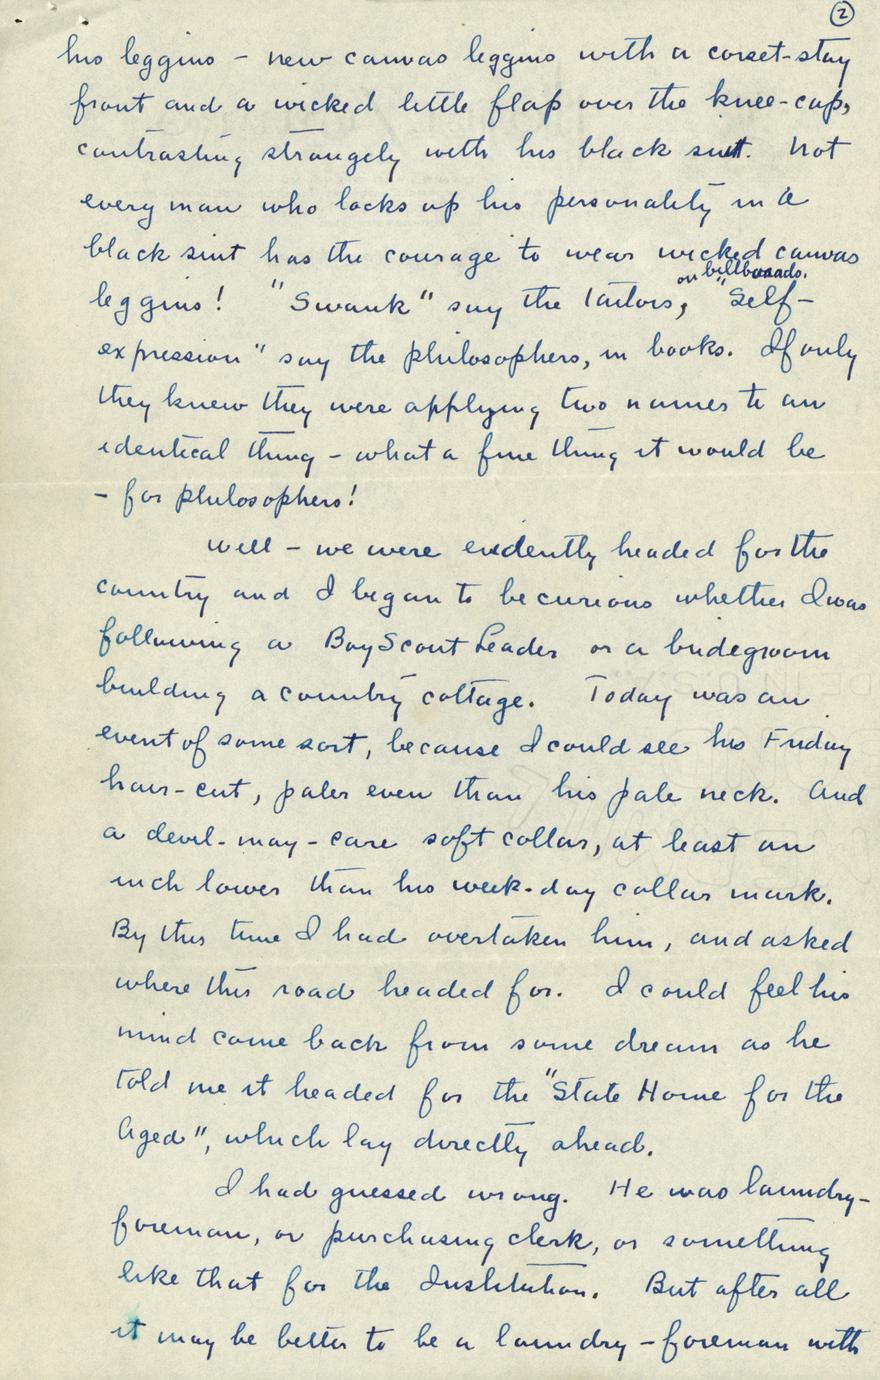 ②
his leggins - new canvas leggins with a corset-stay
front and a wicked little flap over the knee-cap,
contrasting strangely with his black suit. Not
every man who locks up his personality in a
black suit has the courage to wear wicked canvas
on billboards.
leggins! "Swank" say the tailors, "Self-
expression" say the philosophers, in books. If only
they knew they were applying two names to an
identical thing - what a fine thing it would be
- for philosophers!
Well - we were evidently headed for the
country and I began to be curious whether I was
following a Boy Scout Leader or a bridegroom
building a country cottage. Today was an
event of some sort, because I could see his Friday
hair-cut, paler even than his pale neck. And
a devil-may-care soft collar, at least an
inch lower than his week-day collar mark.
By this time I had overtaken him, and asked
where this road headed for. I could feel his
mind come back from some dream as he
told me it headed for the "State Home for the
Aged", which lay directly ahead.
I had guessed wrong. He was laundry-
foreman, or purchasing clerk, or something
like that for the Institution. But after all
it may be better to be a laundry-foreman with